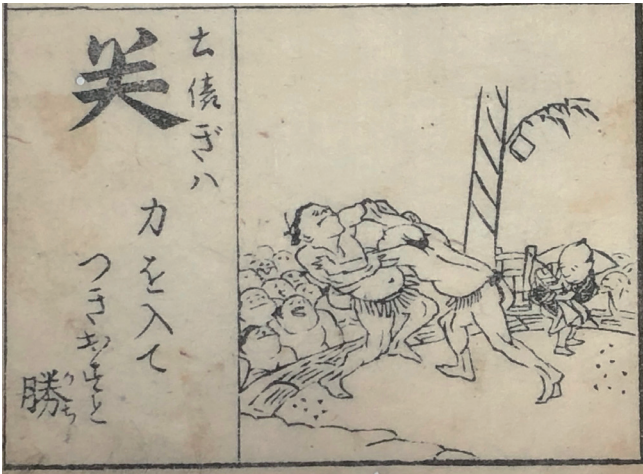 关
土俵ぎハ
力を入て
つきおすと
勝
かち